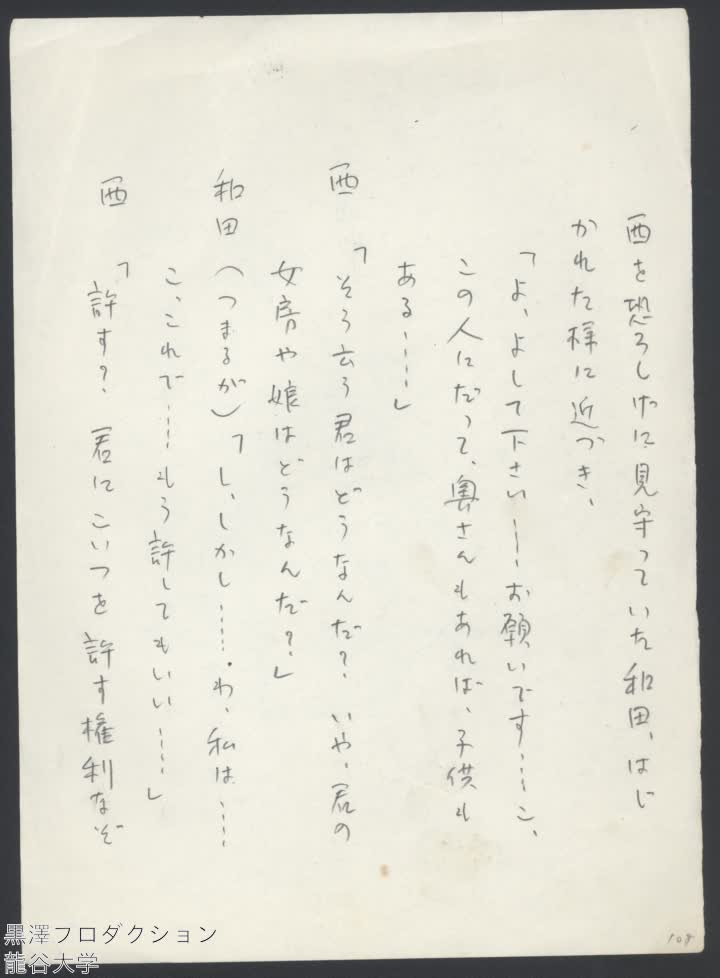 西を恐ろしげに見守っていた和田、はじ
かれた様に近づき、
「よ、よして下さい……お願いです……こ、
この人にだって、奥さんもあれば、子供も
ある……」
西　「そう云う君はどうなんだ？　いや、君の
女房や娘はどうなんだ？」
和田（つまるが）「し、しかし……わ、私は……
こ、これで……もう許してもいい……」
西　「許す？　君にこいつを許す権利なぞ
108
黒澤プロダクション
龍谷大学